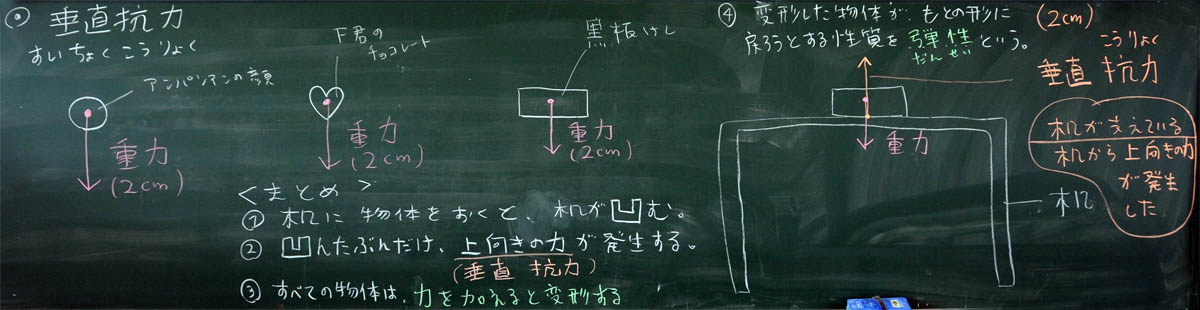 ◎ 垂直抗力
すいちょくこうりょく
アンパンマンの顔
重力
(2cm)
下君の
チョコレート
重力
(2cm)
黒板けし
重力
(2cm)
<まとめ>
① 机に物体をおくと、机が凹む。
② 凹んだぶんだけ、上向きの力が発生する。
(垂直抗力)
③ すべての物体は、力を加えると変形する
④ 変形した物体が、もとの形に
戻ろうとする性質を弾性という。
だんせい
(2cm)
こうりょく
垂直抗力
重力
机
机が支えている
机から上向きの力
が発生
した